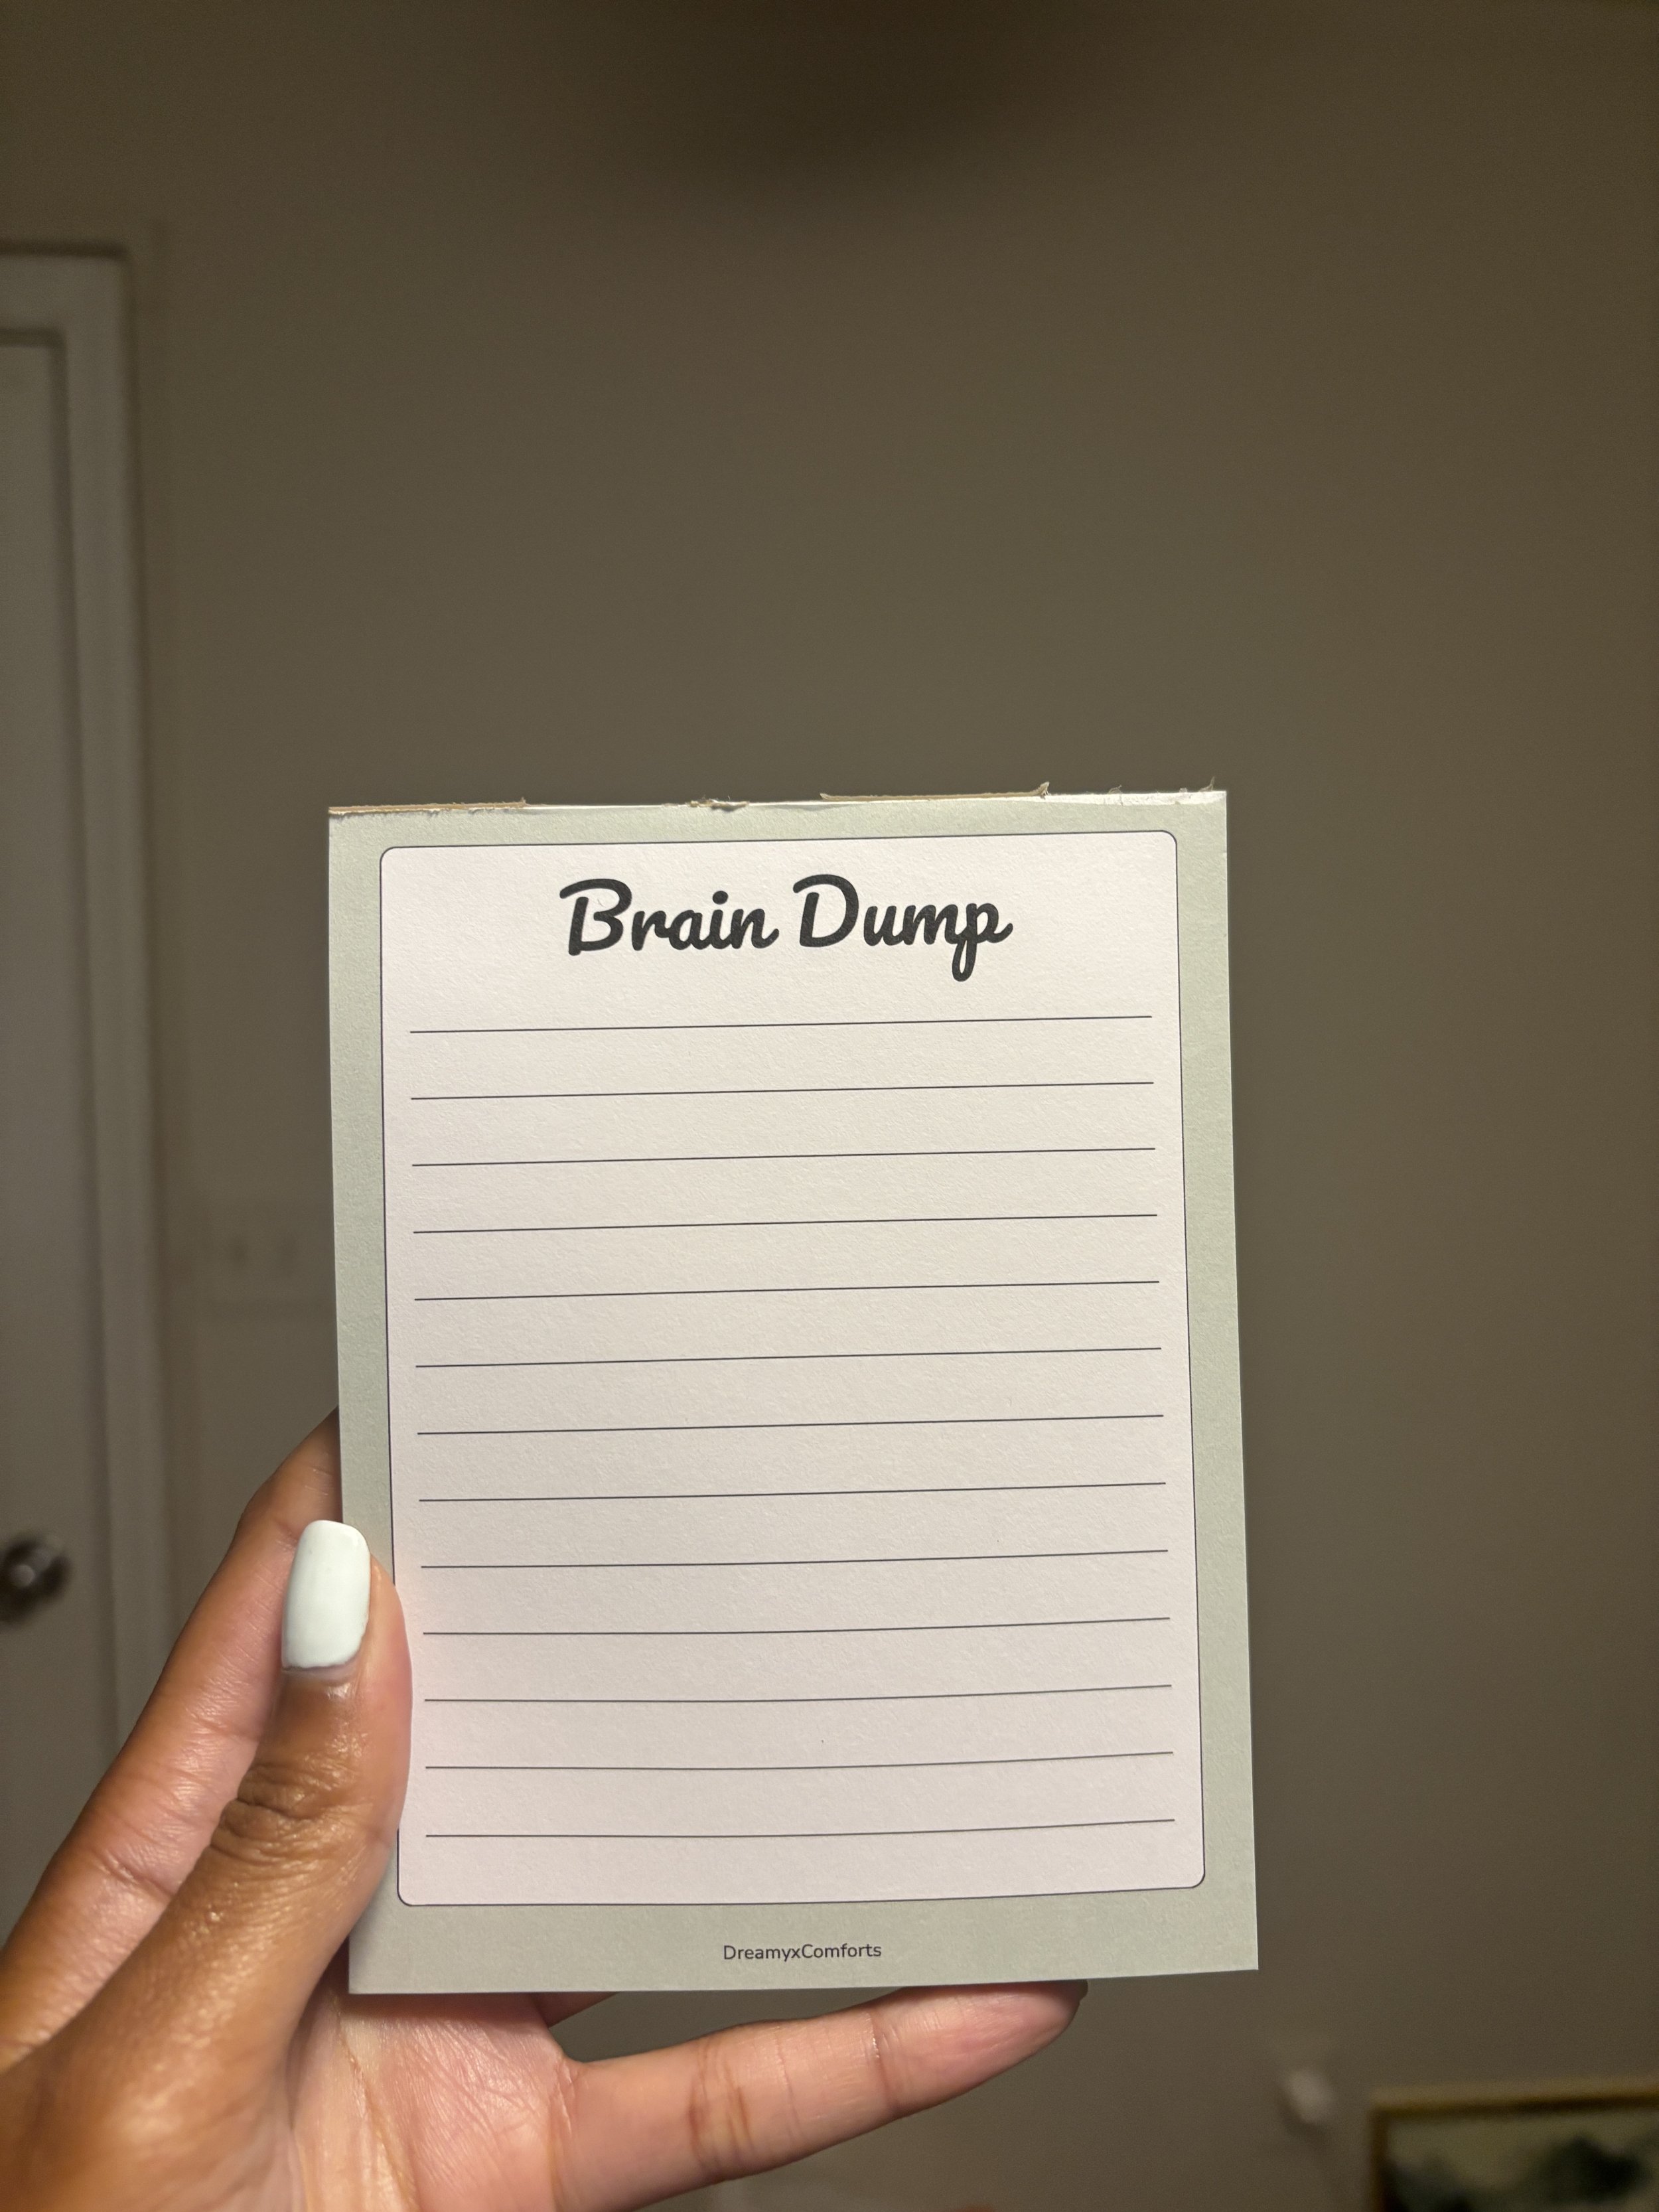 Brain Dump
DreamyxComforts